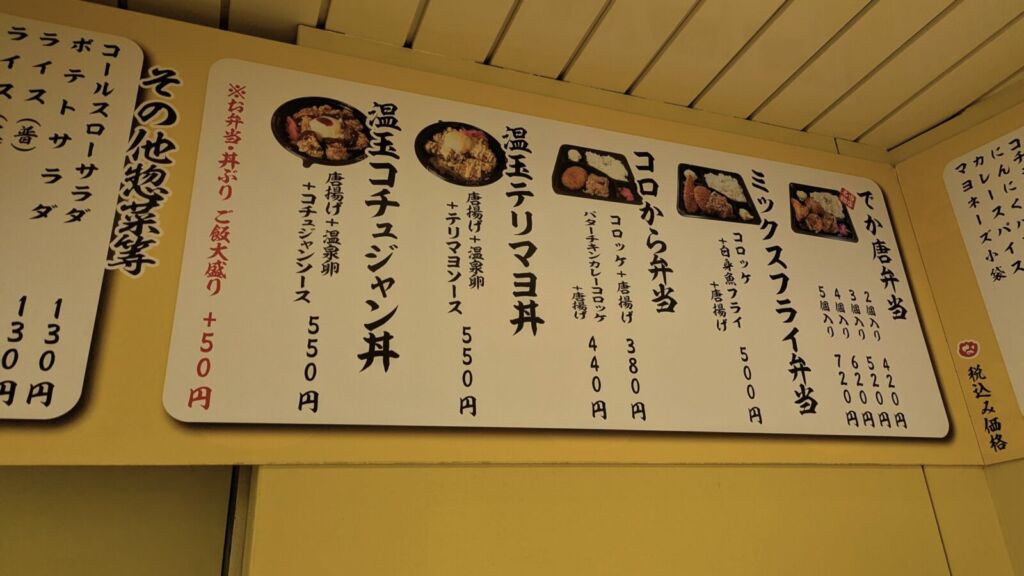 でか唐弁当
2個入り 420円
3個入り 520円
4個入り 620円
5個入り 720円
ミックスフライ弁当
コロッケ
+白身魚フライ
+唐揚げ 500円
コロから弁当
コロッケ+唐揚げ 380円
バターチキンカレーコロッケ
+唐揚げ 440円
温玉テリマヨ丼
唐揚げ+温泉卵
+テリマヨソース 550円
温玉コチュジャン丼
唐揚げ+温泉卵
+コチュジャンソース 550円
※お弁当・丼ぶり ご飯大盛り +50円
税込み価格
にんにくパイス
カレースパイス
マヨネーズ小袋
その他惣菜等
コールスローサラダ 130円
ポテトサラダ 130円
ライス(普)
ライス